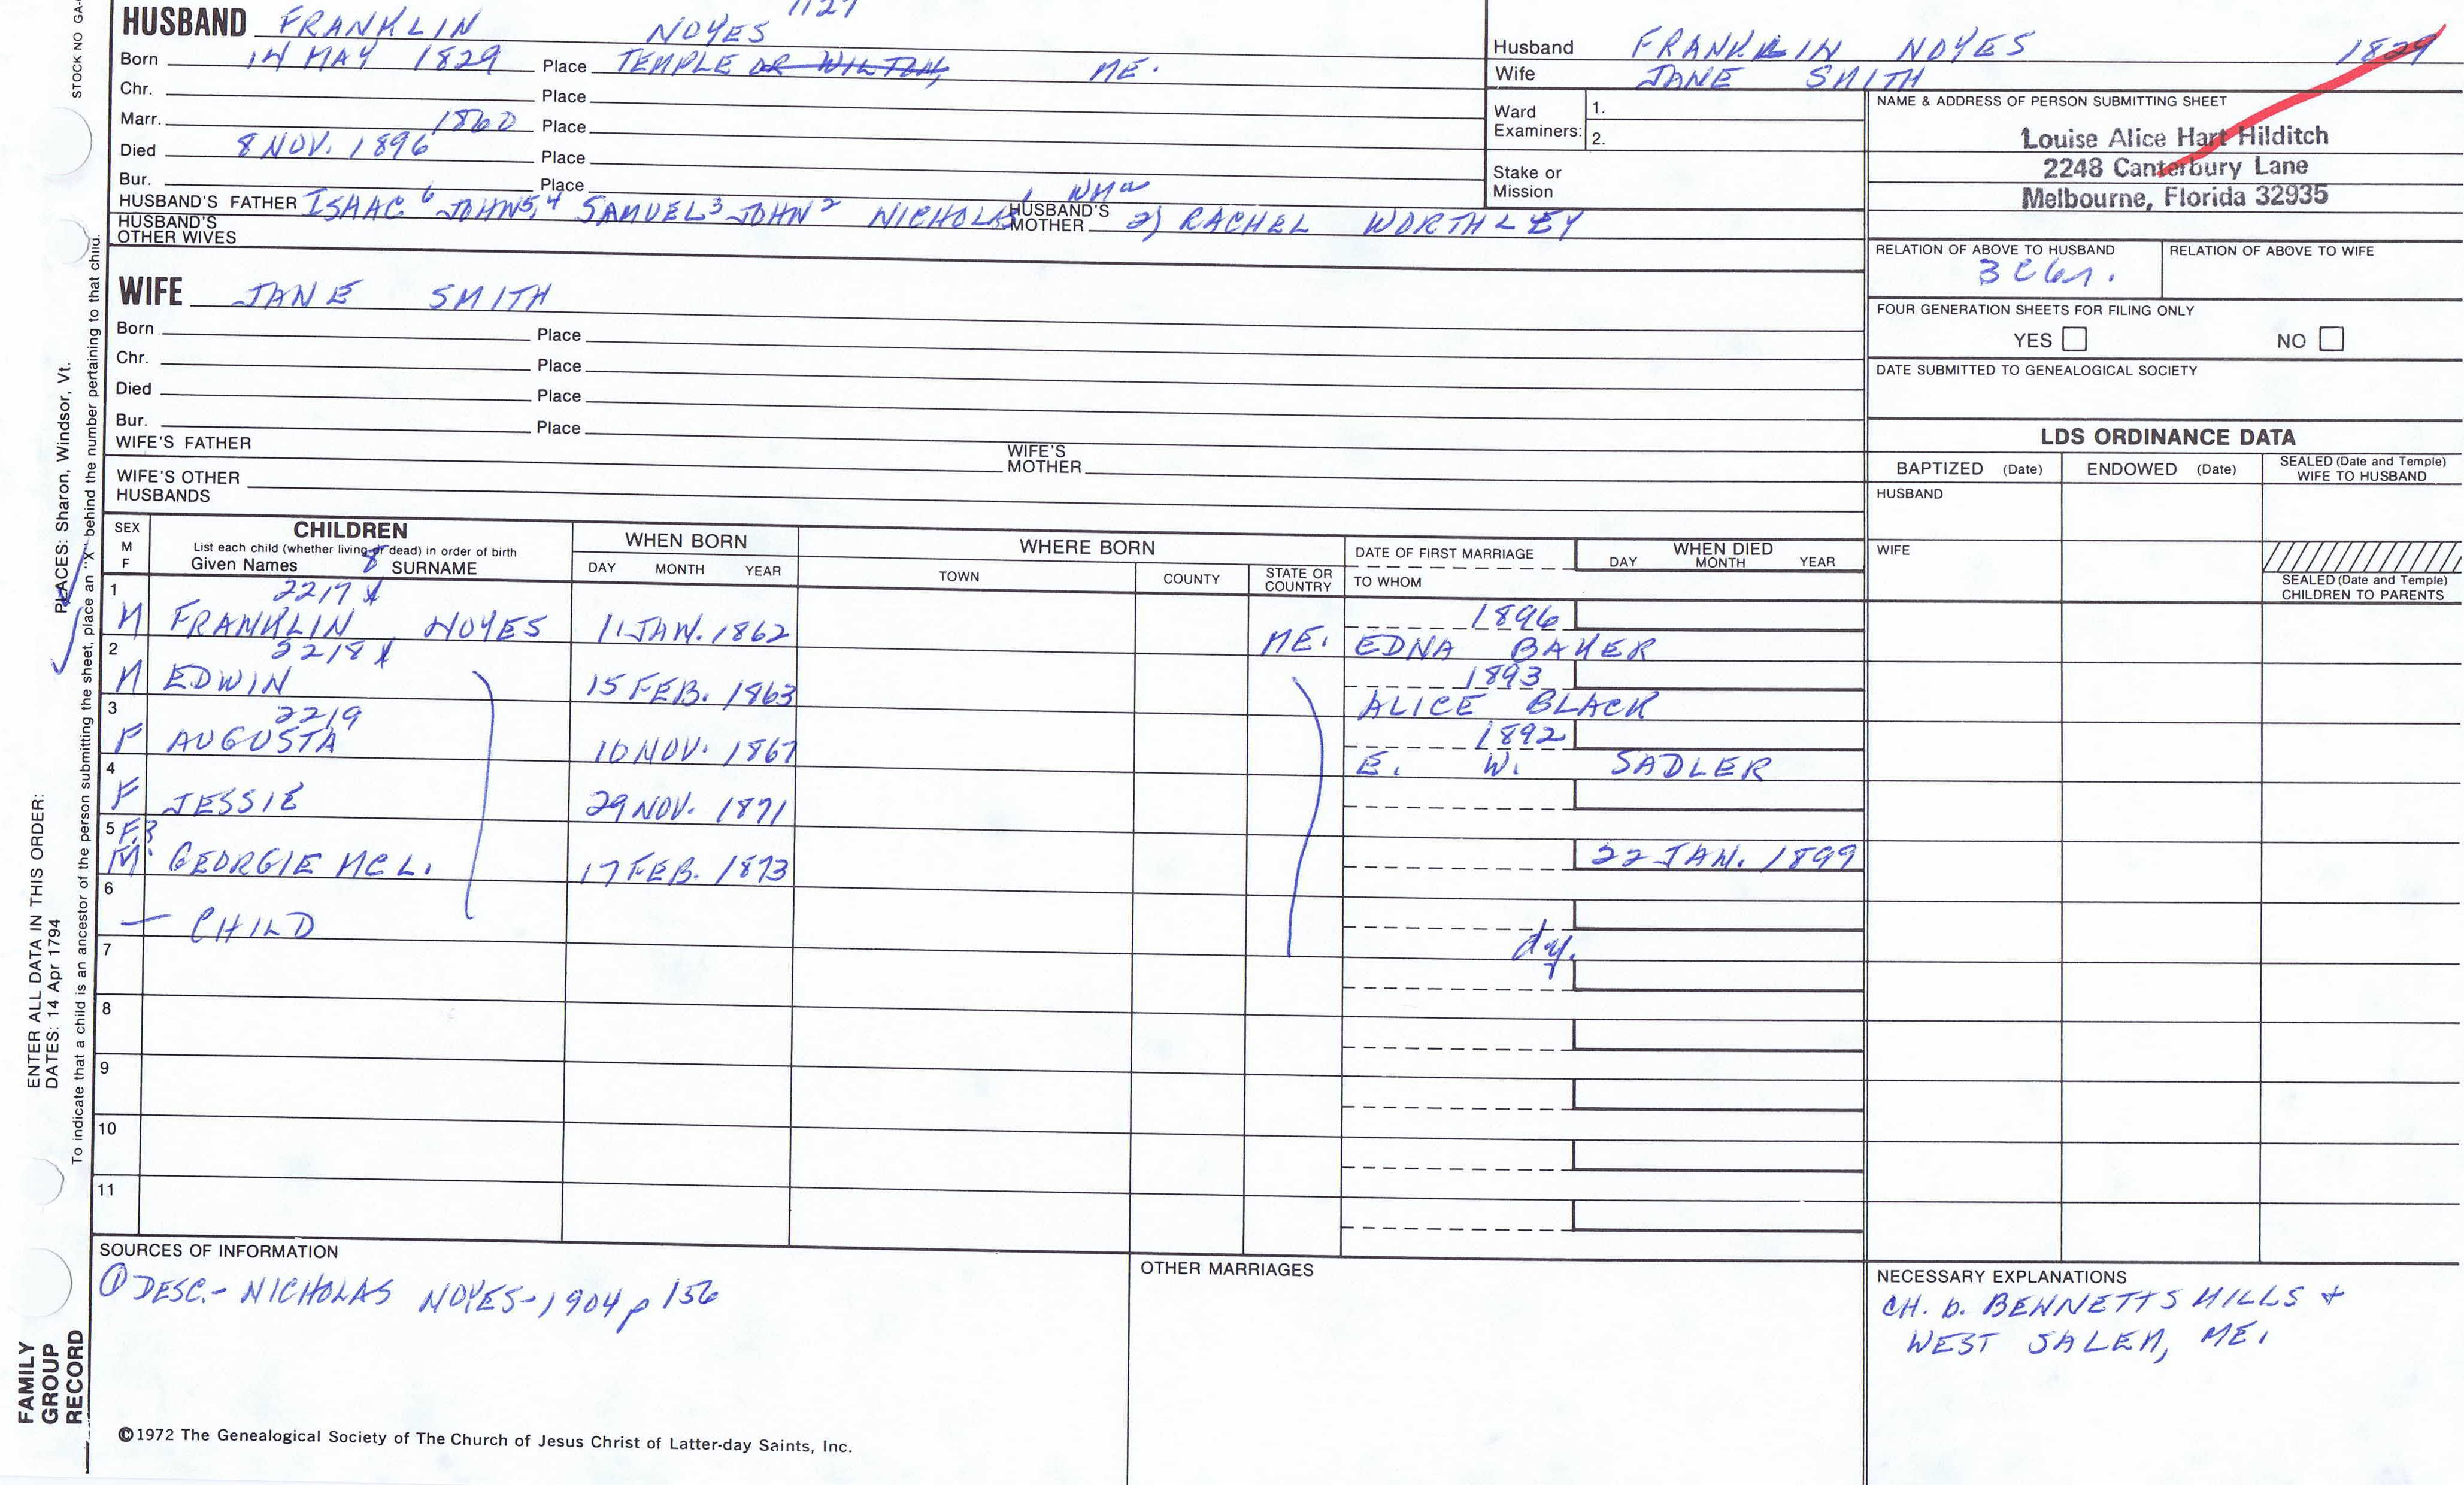 STOCK NO GA-
HUSBAND FRANKLIN NOYES 1127
Born 14 MAY 1829 Place TEMPLE OR WILTON, ME.
Chr. Place
Marr. 1860 Place
Died 8 NOV. 1896 Place
Bur. Place
HUSBAND'S FATHER ISAAC 6 JOHN 5,4 SAMUEL 3 JOHN 2 NICHOLAS 1 HUSBAND'S MOTHER 2) RACHEL WORTHLEY
HUSBAND'S OTHER WIVES
WIFE JANE SMITH
Born Place
Chr. Place
Died Place
Bur. Place
WIFE'S FATHER WIFE'S MOTHER
WIFE'S OTHER HUSBANDS
Husband FRANKLIN NOYES 1829
Wife JANE SMITH
Ward Examiners: 1.
2.
Stake or Mission
NAME & ADDRESS OF PERSON SUBMITTING SHEET
Louise Alice Hart Hilditch
2248 Canterbury Lane
Melbourne, Florida 32935
RELATION OF ABOVE TO HUSBAND RELATION OF ABOVE TO WIFE
FOUR GENERATION SHEETS FOR FILING ONLY
YES NO
DATE SUBMITTED TO GENEALOGICAL SOCIETY
LDS ORDINANCE DATA
BAPTIZED (Date) ENDOWED (Date) SEALED (Date and Temple) WIFE TO HUSBAND
HUSBAND
WIFE
SEALED (Date and Temple) CHILDREN TO PARENTS
SEX M F
CHILDREN
List each child (whether living or dead) in order of birth
Given Names 8 SURNAME
WHEN BORN
DAY MONTH YEAR
WHERE BORN
TOWN COUNTY STATE OR COUNTRY
DATE OF FIRST MARRIAGE
TO WHOM
WHEN DIED
DAY MONTH YEAR
1 2217 X 1896
M FRANKLIN NOYES 11 JAN. 1862 ME. EDNA BAKER
2 2218 X 1893
M EDWIN 15 FEB. 1863 ALICE BLACK
3 2219 1892
F AUGUSTA 10 NOV. 1867 E. W. SADLER
4
F JESSIE 29 NOV. 1871
5 F?
M. GEORGIE MCL. 17 FEB. 1873 22 JAN. 1899
6
— CHILD dy.
7
8
9
10
11
SOURCES OF INFORMATION
① DESC.- NICHOLAS NOYES-1904 p 156
OTHER MARRIAGES
NECESSARY EXPLANATIONS
CH. b. BENNETTS MILLS +
WEST SALEM, ME.
©1972 The Genealogical Society of The Church of Jesus Christ of Latter-day Saints, Inc.
FAMILY GROUP RECORD
ENTER ALL DATA IN THIS ORDER:
DATES: 14 Apr 1794
PLACES: Sharon, Windsor, Vt.
To indicate that a child is an ancestor of the person submitting the sheet, place an "X" behind the number pertaining to that child.